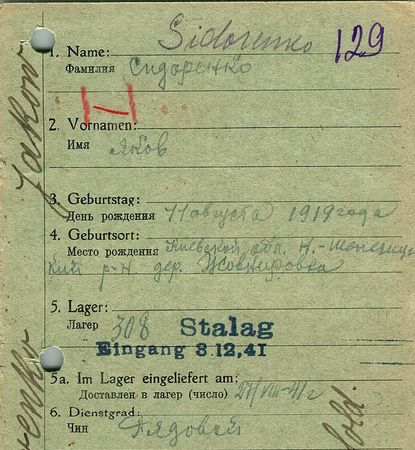 Sidorenko
129
1. Name:
Фамилия Сидоренко
H
2. Vornamen:
Имя Яков
3. Geburtstag:
День рождения 11 августа 1919 года
4. Geburtsort:
Место рождения Киевской обл. Н.-Шепелиц
кий р-н. дер.
5. Lager:
Лагерь 308 Stalag
Eingang 8.12.41
5a. Im Lager eingeliefert am:
Доставлен в лагерь (число) 27/VIII-41г
6. Dienstgrad:
Чин Рядовой
Jakow
renko
Sold.